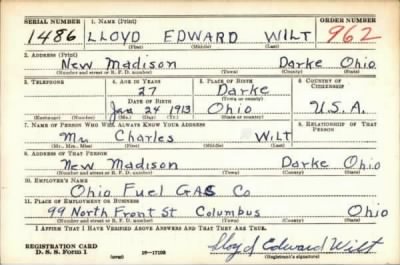 SERIAL NUMBER 1. NAME (Print) ORDER NUMBER
1486 LLOYD EDWARD WILT 962
(First) (Middle) (Last)
2. ADDRESS (Print)
New Madison Darke Ohio
(Number and street or R. F. D. number) (Town) (County) (State)
3. TELEPHONE 4. AGE IN YEARS 5. PLACE OF BIRTH 6. COUNTRY OF CITIZENSHIP
27 Darke
DATE OF BIRTH (Town or county)
Jan 24 1913 Ohio U.S.A.
(Exchange) (Number) (Mo.) (Day) (Yr.) (State or country)
7. NAME OF PERSON WHO WILL ALWAYS KNOW YOUR ADDRESS 8. RELATIONSHIP OF THAT PERSON
Mr Charles WILT
(Mr., Mrs., Miss) (First) (Middle) (Last)
9. ADDRESS OF THAT PERSON
New Madison Darke Ohio
(Number and street or R. F. D. number) (Town) (County) (State)
10. EMPLOYER'S NAME
Ohio Fuel GAS Co
11. PLACE OF EMPLOYMENT OR BUSINESS
99 North Front St Columbus Ohio
(Number and street or R. F. D. number) (Town) (County) (State)
I AFFIRM THAT I HAVE VERIFIED ABOVE ANSWERS AND THAT THEY ARE TRUE.
REGISTRATION CARD
D. S. S. Form 1 16—17105 Lloyd Edward Wilt
(over) (Registrant's signature)